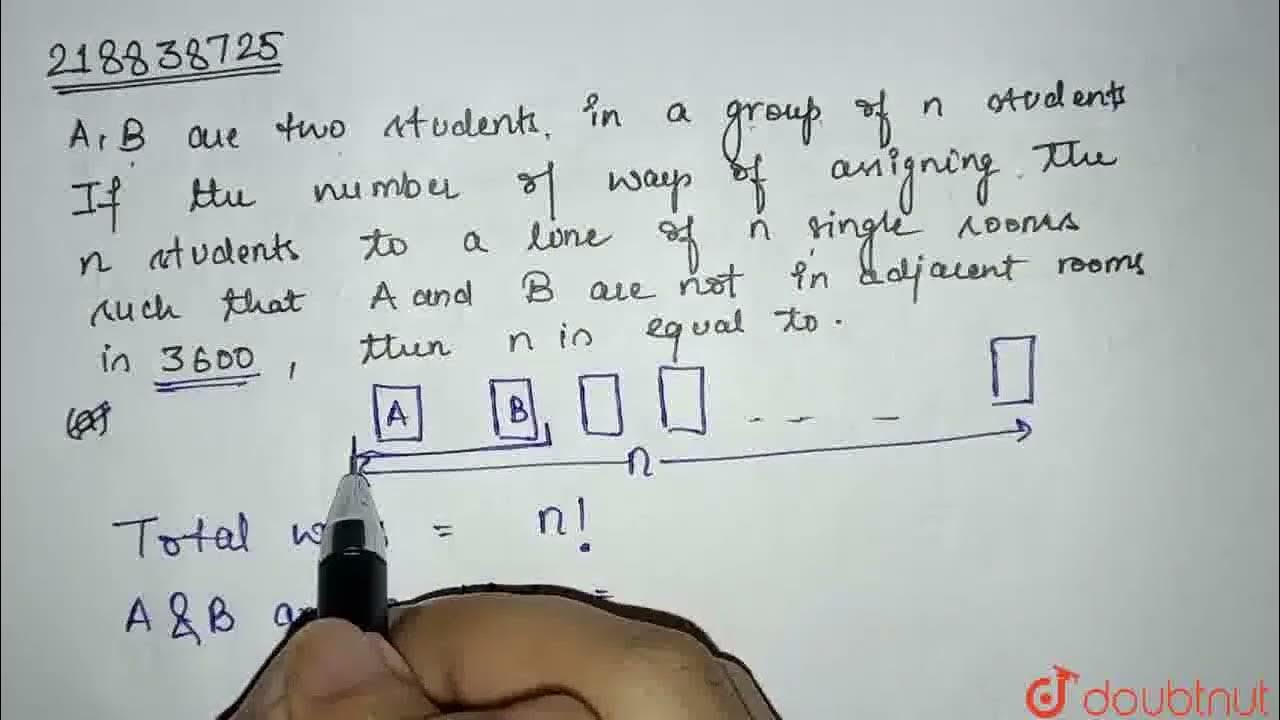 218838725
A, B are two students in a group of n students
If the number of ways of assigning the
n students to a line of n single rooms
such that A and B are not in adjacent rooms
in 3600, then n is equal to.
A B
n
Total = n!
A & B =
doubtnut